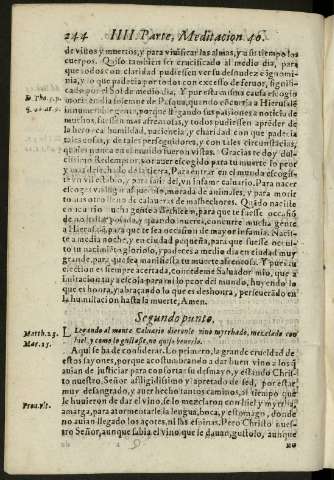 244 IIII. Parte, Meditacion 46.
de viuos y muertos, y para viuificar las almas, y a su tiempo los
cuerpos. Quiso tambien ser crucificado al medio dia, para
que todos con claridad pudiessen ver su desnudez e ignomi-
nia, y lo que padecia por todos con excesso de feruor, signifi-
cado por el Sol de medio dia. Y por esta misma causa escogio
morir en dia solemne de Pasqua, quando concurria a Hierusalẽ
innumerable gente, porque llegando sus passiones a noticia de
muchos, fuessen mas afrentosas, y todos pudiessen aprẽder de
la heroica humildad, paciencia, y charidad con que padecia
tales cosas, y de tales perseguidores, y con tales circunstãcias,
quales nunca en el mundo fueron vistas. Gracias te doy dul-
cissimo Redemptor, por auer escogido para tu muerte lo peor
y mas desechado de la tierra. Para entrar en el mundo escogis-
te vn vil establo, y para salir del, vn infame caluario. Para nacer
escoges vil lugar
morada de animales, y para morir
otro lleno de calauaras de malhechores. Quãdo naciste
gente a Bethleem, para que te fuesse ocasiõ
de no hallar posada, y quando mueres, concurre mucha gente
a Hierusalẽ, para que te sea ocasion de mayor infamia. Nacis-
te a media noche, y en ciudad pequeña, para que fuesse ocul-
to tu nacimiẽto glorioso, y padeces a medio dia en ciudad muy
grande, para que sea manifiesta tu muerte afrentosa. Y pues tu
eleccion es siempre acertada, concedeme Saluador mio, que a
imitacion tuya escoja para mi lo peor del mundo, huyendo lo
que es honra, y abraçando lo que es deshonra, perseuerãdo en
la humiliacion hasta la muerte, Amen.
Segundo punto.
Llegando al monte Caluario dieronle vino myrrhado, mezclado con
hiel, y como lo gustasse, no quiso beuerlo.
Aqui se ha de considerar. Lo primero, la grande crueldad de
estos sayones, porque acostumbrando a dar buen vino a los q̃
auian de justiciar para confortar su desmayo, y estando Chris-
to nuestro Señor afligidissimo y apretado de sed, por estar
muy desangrado, y auer hecho tantos caminos, al tiempo que
le huuieron de dar el vino, se lo mezclaron con hiel y myrrha
amarga, para atormentarle la lengua, boca, y estomago, donde
no auian llegado los açotes, ni las espinas. Pero Christo nues-
tro Señor, aunque sabia el vino que le dauan, gustolo, aunque
D. Tho. 3. p.
Matth. 27.
Mar. 15.